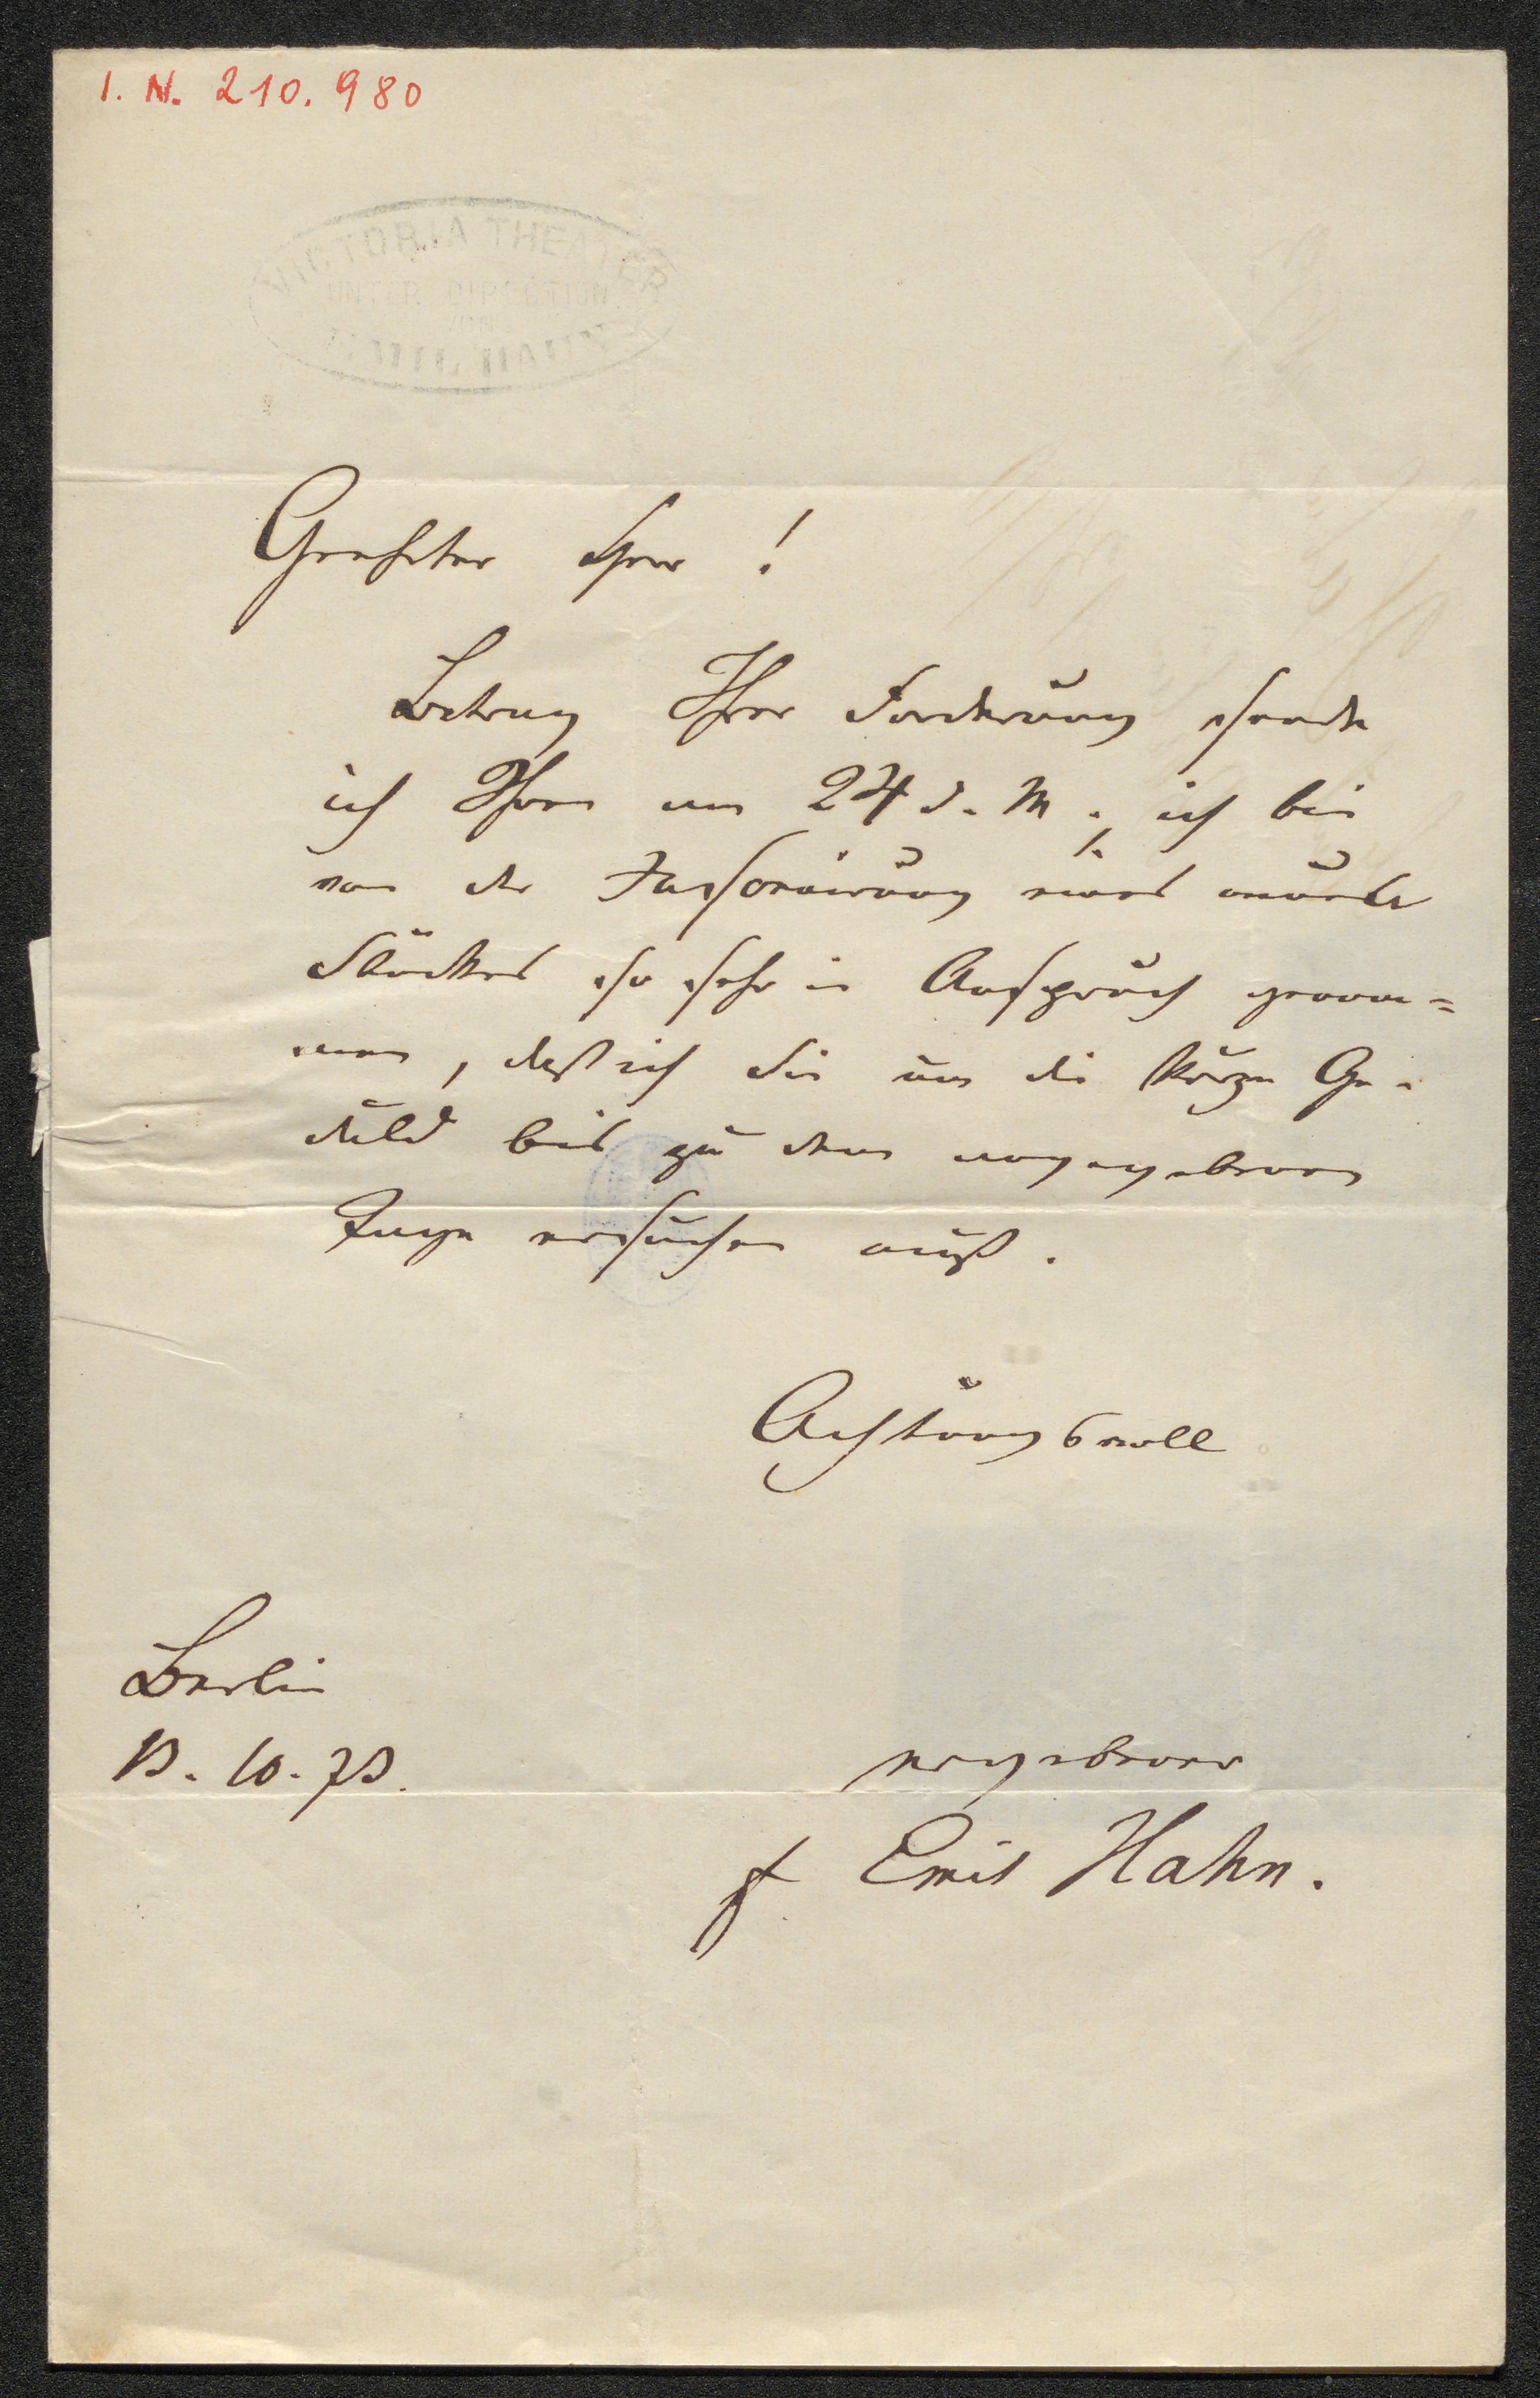 I. N. 210.980
VICTORIA THEATER
UNTER DIRECTION
VON
EMIL HAHN
Geehrter Herr!
Betrag Ihrer Forderung sende
ich Ihnen am 24 d. M.; ich bin
von der Inscenirung eines neuen
Stückes so sehr in Anspruch genom=
men, daß ich Sie um die kurze Ge-
duld bis zu dem angegebenen
Tage ersuchen muß.
Achtungsvoll
Berlin
13. 10. 73.
ergebener
Emil Hahn.